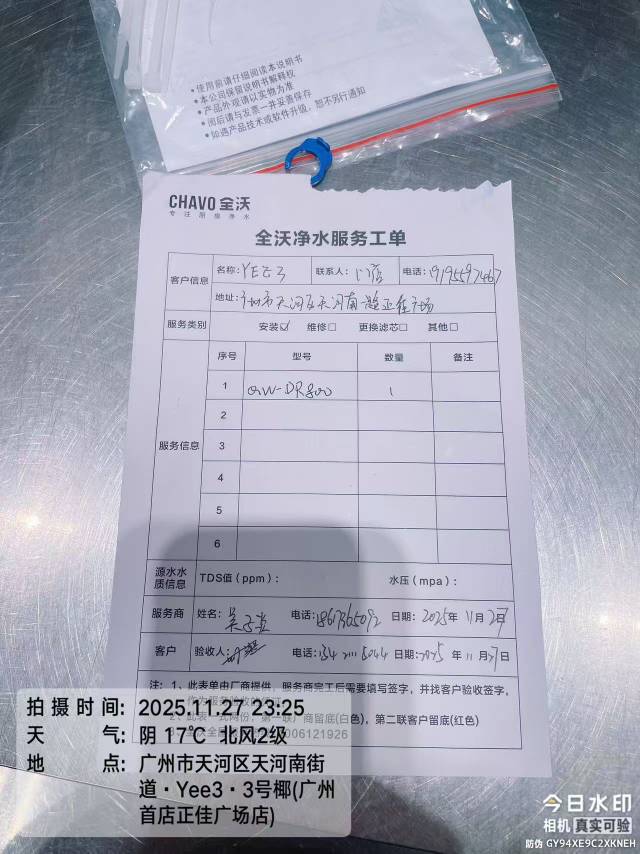 • 使用前请仔细阅读本说明书
• 本公司保留说明书解释权
• 产品外观请以实物为准
• 阅后请与发票一并妥善保存
• 如遇产品技术或软件升级，恕不另行通知
CHAVO 全沃
专注厨房净水
全沃净水服务工单
客户信息 名称：YEE3 联系人：门店 电话：19195597467
地址：广州市天河区天河南一路正佳广场
服务类别 安装☑ 维修□ 更换滤芯□ 其他□
服务信息
序号 型号 数量 备注
1 QW-DR800 1
2
3
4
5
6
源水水质信息 TDS值（ppm）： 水压（mpa）：
服务商 姓名： 电话：18673365092 日期：2025年11月27日
客户 验收人： 电话：134 2111 5044 日期：2025年11月27日
注：1、此表单由厂商提供，服务商完工后需要填写签字，并找客户验收签字，
2、此表一式两份，第一联厂商留底(白色)，第二联客户留底(红色)
006121926
拍摄时间：2025.11.27 23:25
天气：阴 17℃ 北风2级
地点：广州市天河区天河南街
道·Yee3·3号椰(广州
首店正佳广场店)
今日水印
相机 真实可验
防伪 GY94XE9C2XKNEH